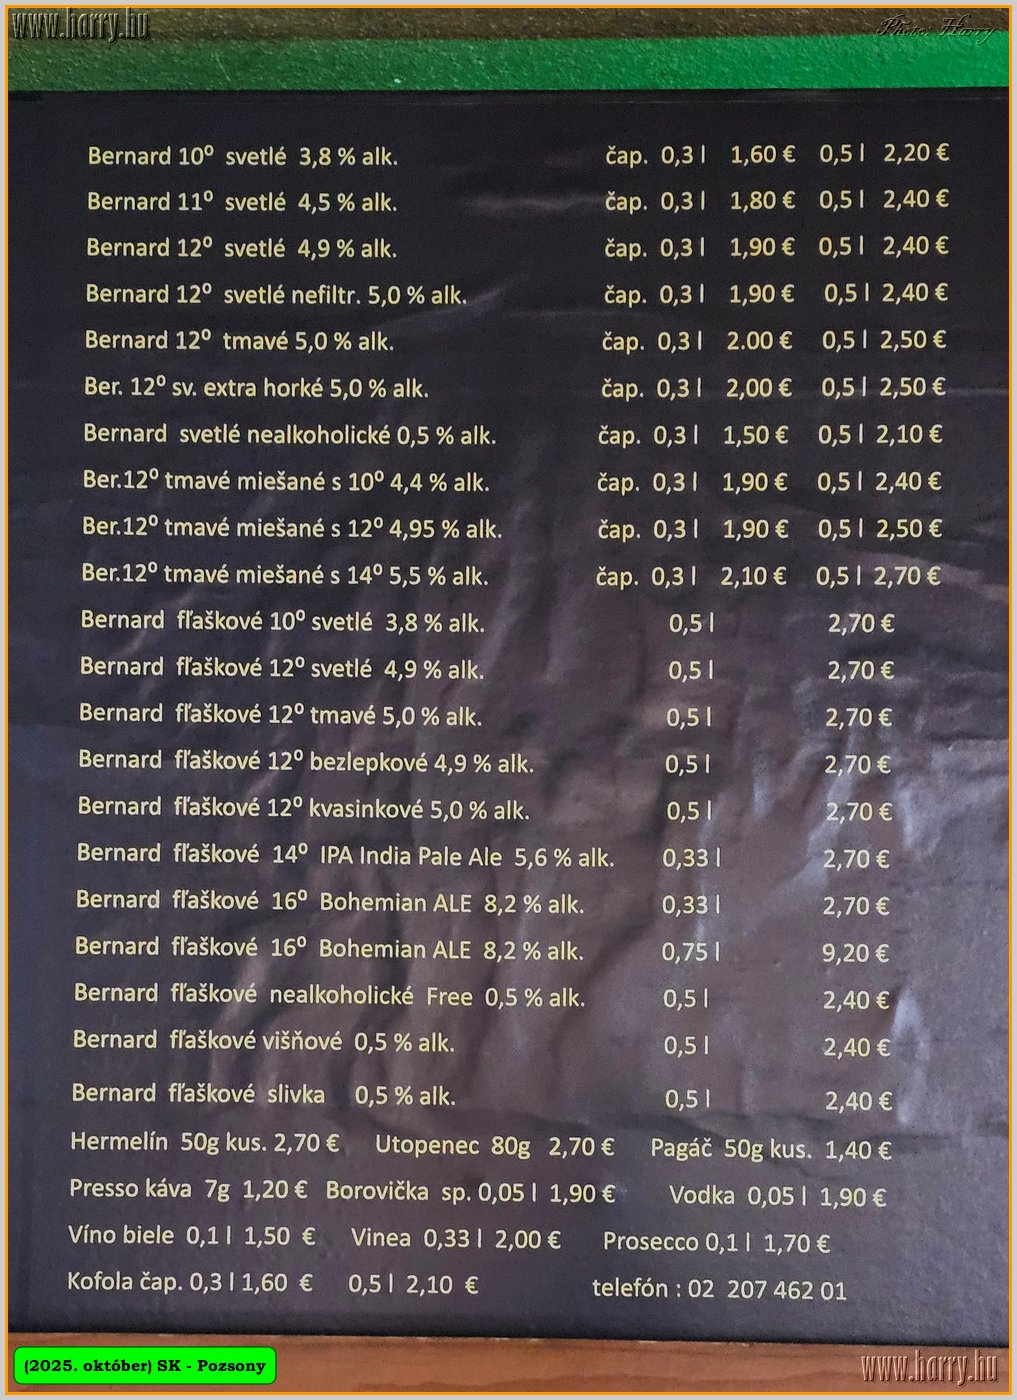 www.harry.hu
Photo: Harry
Bernard 10⁰ svetlé 3,8 % alk. čap. 0,3 l 1,60 € 0,5 l 2,20 €
Bernard 11⁰ svetlé 4,5 % alk. čap. 0,3 l 1,80 € 0,5 l 2,40 €
Bernard 12⁰ svetlé 4,9 % alk. čap. 0,3 l 1,90 € 0,5 l 2,40 €
Bernard 12⁰ svetlé nefiltr. 5,0 % alk. čap. 0,3 l 1,90 € 0,5 l 2,40 €
Bernard 12⁰ tmavé 5,0 % alk. čap. 0,3 l 2.00 € 0,5 l 2,50 €
Ber. 12⁰ sv. extra horké 5,0 % alk. čap. 0,3 l 2,00 € 0,5 l 2,50 €
Bernard svetlé nealkoholické 0,5 % alk. čap. 0,3 l 1,50 € 0,5 l 2,10 €
Ber.12⁰ tmavé miešané s 10⁰ 4,4 % alk. čap. 0,3 l 1,90 € 0,5 l 2,40 €
Ber.12⁰ tmavé miešané s 12⁰ 4,95 % alk. čap. 0,3 l 1,90 € 0,5 l 2,50 €
Ber.12⁰ tmavé miešané s 14⁰ 5,5 % alk. čap. 0,3 l 2,10 € 0,5 l 2,70 €
Bernard fľaškové 10⁰ svetlé 3,8 % alk. 0,5 l 2,70 €
Bernard fľaškové 12⁰ svetlé 4,9 % alk. 0,5 l 2,70 €
Bernard fľaškové 12⁰ tmavé 5,0 % alk. 0,5 l 2,70 €
Bernard fľaškové 12⁰ bezlepkové 4,9 % alk. 0,5 l 2,70 €
Bernard fľaškové 12⁰ kvasinkové 5,0 % alk. 0,5 l 2,70 €
Bernard fľaškové 14⁰ IPA India Pale Ale 5,6 % alk. 0,33 l 2,70 €
Bernard fľaškové 16⁰ Bohemian ALE 8,2 % alk. 0,33 l 2,70 €
Bernard fľaškové 16⁰ Bohemian ALE 8,2 % alk. 0,75 l 9,20 €
Bernard fľaškové nealkoholické Free 0,5 % alk. 0,5 l 2,40 €
Bernard fľaškové višňové 0,5 % alk. 0,5 l 2,40 €
Bernard fľaškové slivka 0,5 % alk. 0,5 l 2,40 €
Hermelín 50g kus. 2,70 € Utopenec 80g 2,70 € Pagáč 50g kus. 1,40 €
Presso káva 7g 1,20 € Borovička sp. 0,05 l 1,90 € Vodka 0,05 l 1,90 €
Víno biele 0,1 l 1,50 € Vinea 0,33 l 2,00 € Prosecco 0,1 l 1,70 €
Kofola čap. 0,3 l 1,60 € 0,5 l 2,10 € telefón : 02 207 462 01
(2025. október) SK - Pozsony
www.harry.hu